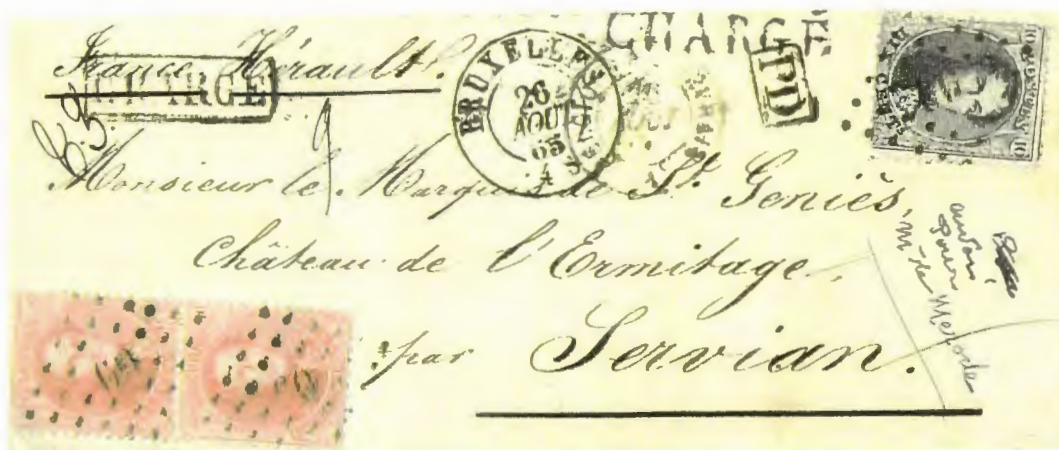 CHARGÉ
France Hérault.
CHARGÉ
BRUXELLES
26
AOUT
65
PD
DIX CENTIMES
Monsieur le Marquis de St. Geniès,
Château de l'Ermitage,
par Servian.
pour
Mr de Merode